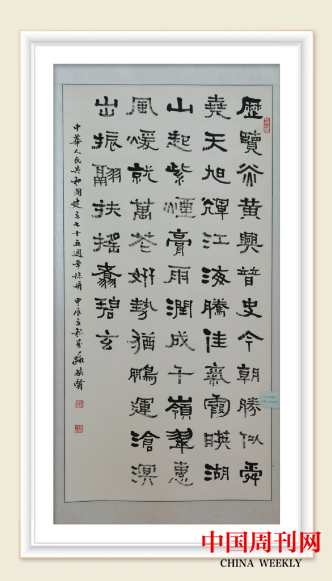 歷覽炎黄興替史今朝勝似舜
堯天旭輝江海騰佳氣霞映湖
山起紫煙膏雨潤成千嶺翠惠
風暖就萬花妍勢猶鵬運滄溟
出振翮扶搖翥碧玄
中華人民共和國建立七十五週年誌慶 甲辰
中国周刊网
CHINA WEEKLY